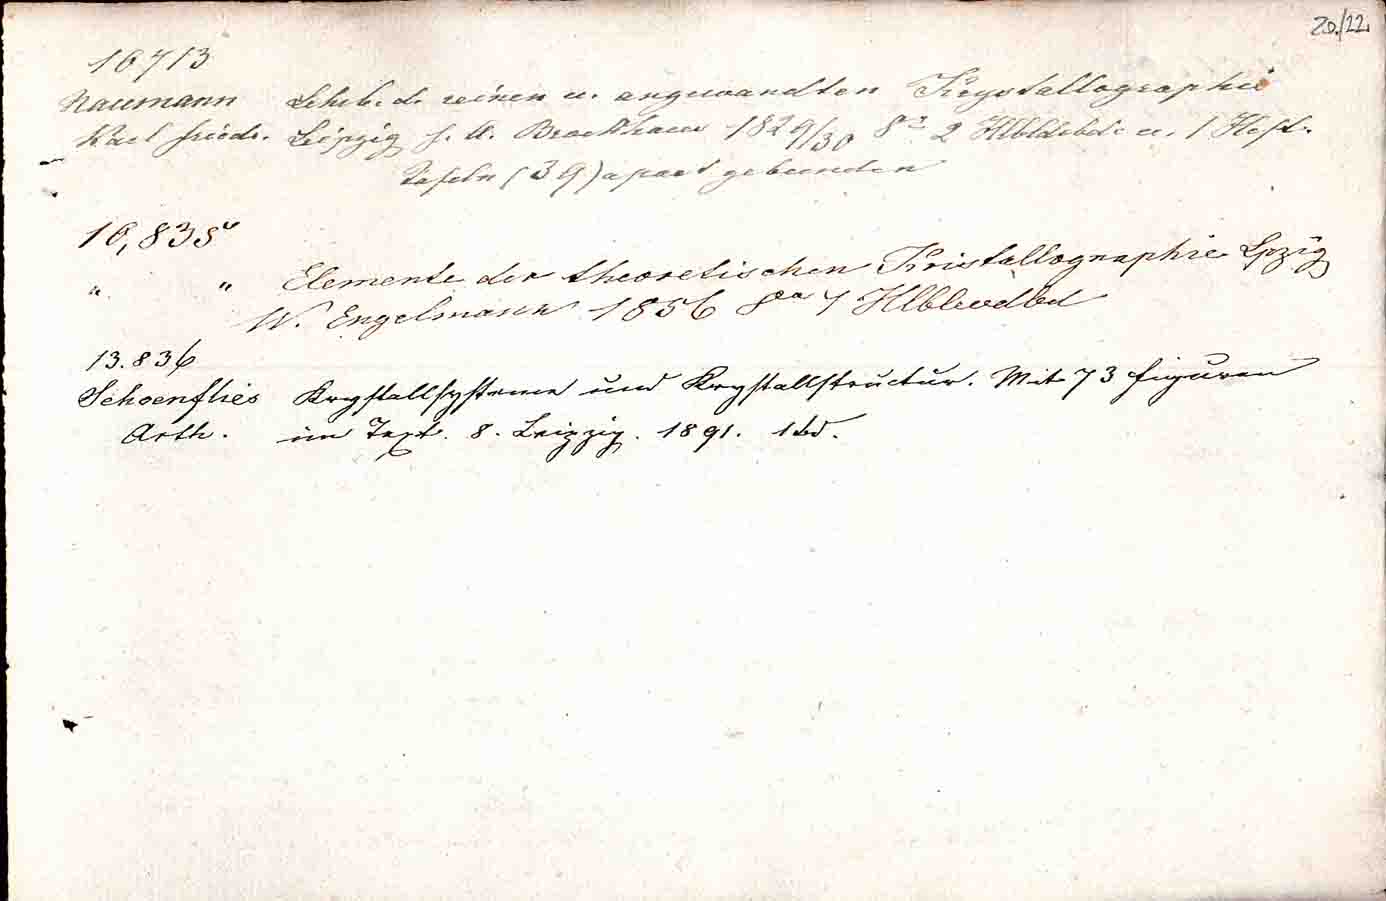 20./22.
16713
Naumann Lehrb. d. reinen u. angewandten Krystallographie
Karl Friedr. Leipzig F. A. Brockhaus 1829/30 8° 2 Hlbldrbde u. 1 Heft.
Tafeln (39) apart gebunden
16,835
" " Elemente der theoretischen Kristallographie Lpzig
W. Engelmann 1856 8va 1 Hlblwdbd
13.836
Schoenflies Krystallsysteme und Krystallstructur. Mit 73 Figuren
Arth. im Text. 8. Leipzig. 1891. 1 bd.